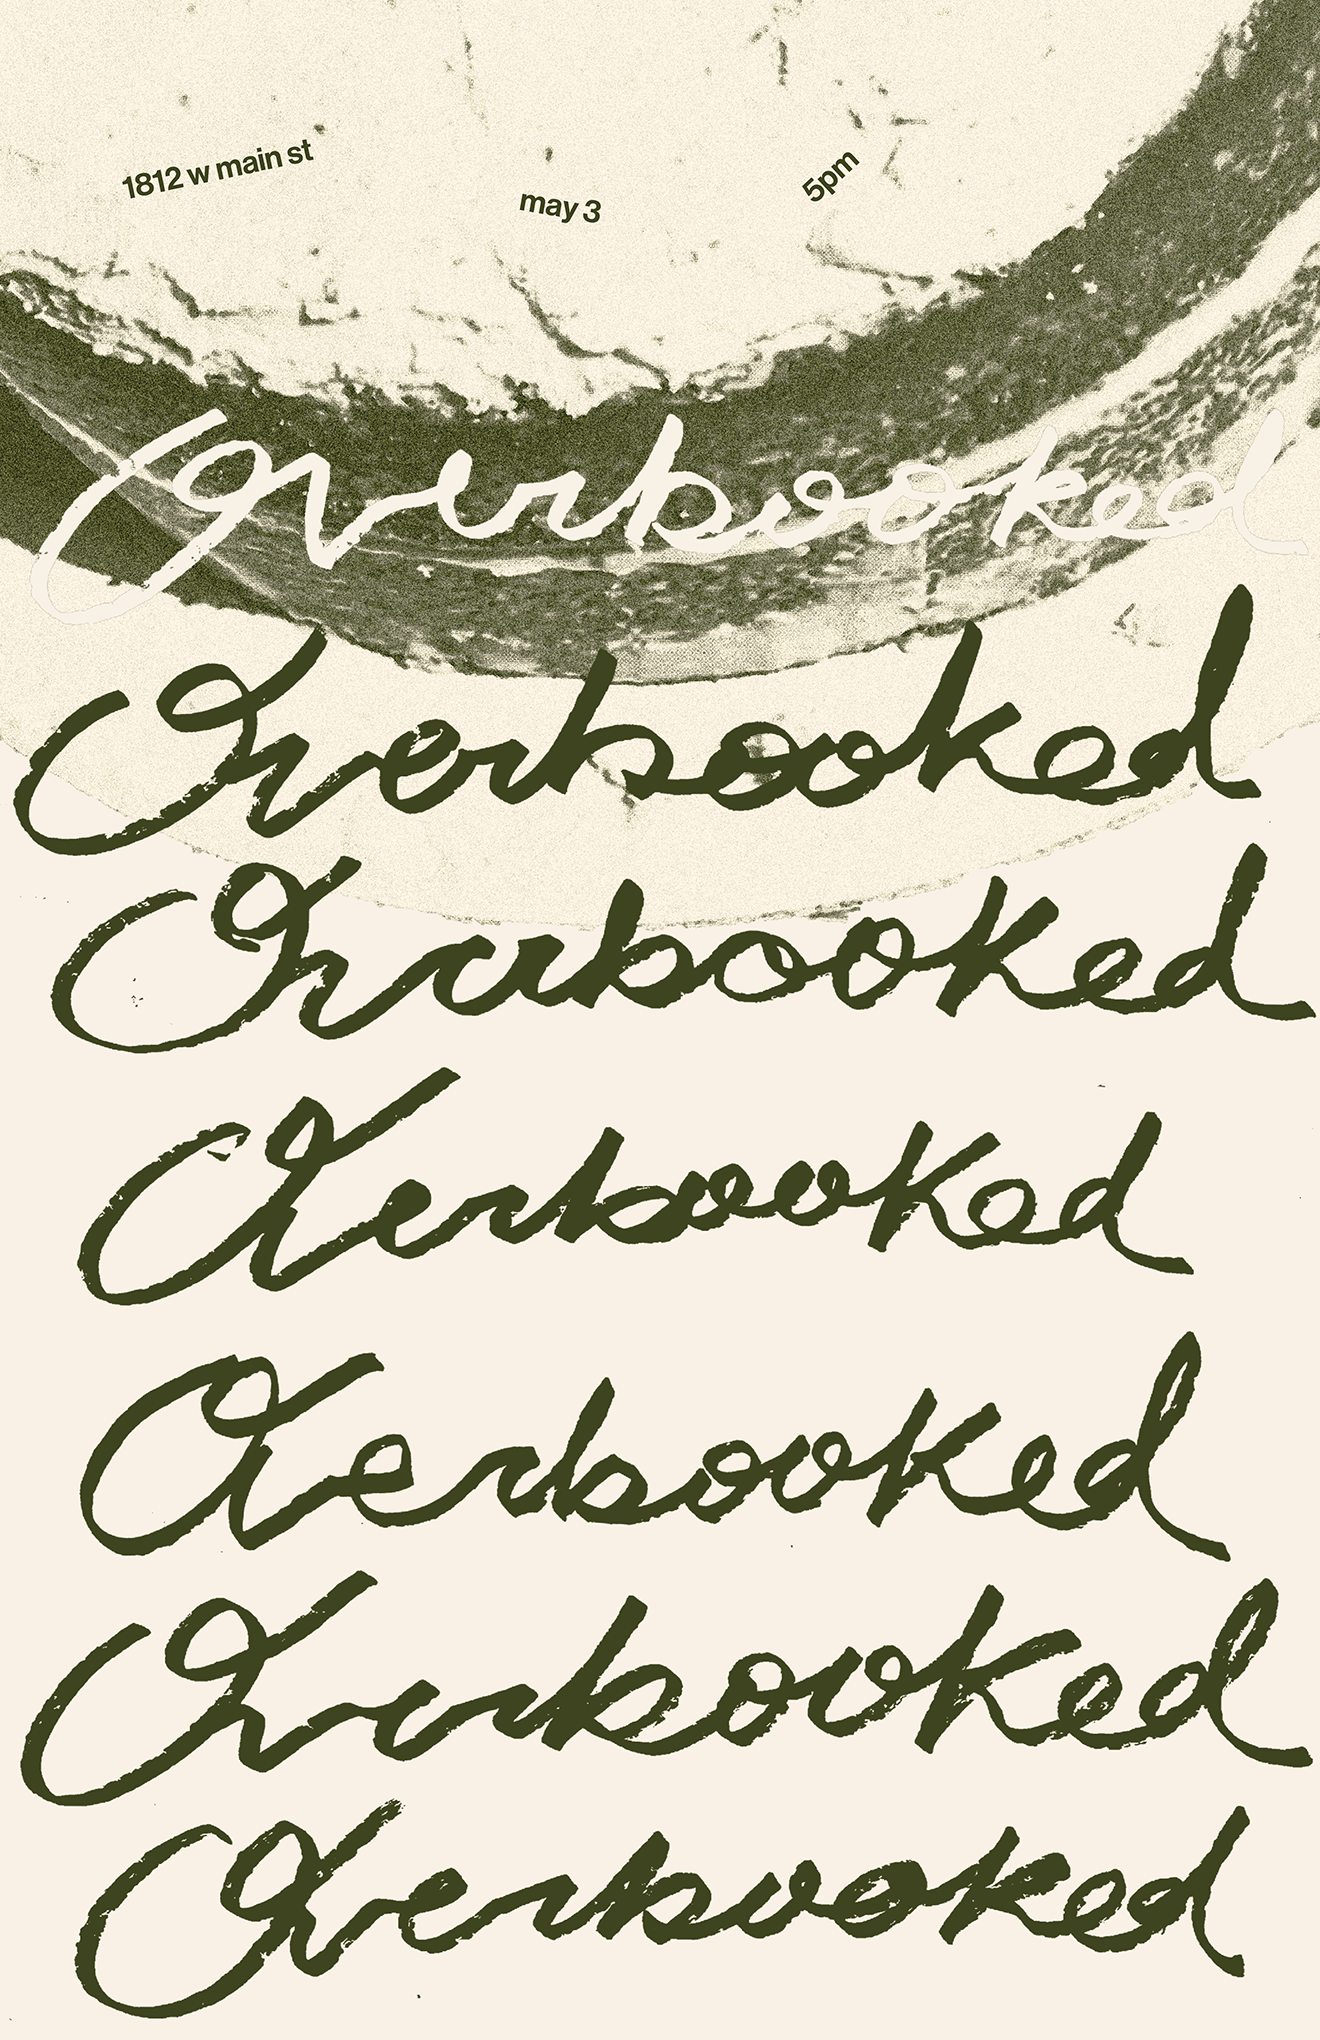 1812 w main st
may 3
5pm
Overbooked
Overbooked
Overbooked
Overbooked
Overbooked
Overbooked
Overbooked